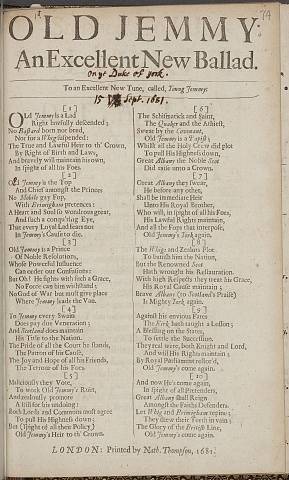 74
OLD JEMMY:
An Excellent New Ballad.
on ye Duke of york.
To an Excellent New Tune, called, Young Jemmy.
15 Sept. 1681.
[1]
Old Jemmy is a Lad
Right lawfully descended;
No Bastard born nor bred,
Nor for a Whig suspended:
The True and Lawful Heir to th' Crown,
By Right of Birth and Laws,
And bravely will maintain his own,
In spight of all his Foes.
[2]
Old Jemmy is the Top
And Chief amongst the Princes
No Mobile gay Fop,
With Birmingham pretences:
A Heart and Soul so wondrous great,
And such a conqu'ring Eye,
That every Loyal Lad fears not
In Jemmy's Cause to die.
[3]
Old Jemmy is a Prince
Of Noble Resolutions,
Whose Powerful Influence
Can order our Confusions:
But Oh! He fights with such a Grace,
No Force can him withstand;
No God of War but must give place
Where Jemmy leads the Van.
[4]
To Jemmy every Swain
Does pay due Veneration;
And Scotland does maintain
His Title to the Nation.
The Pride of all the Court he stands,
The Patron of his Cause,
The Joy and Hope of all his Friends,
The Terrour of his Foes.
[5]
Maliciously they Vote,
To work Old Jemmy's Ruin,
And zealously promote
A Bill for his undoing:
Both Lords and Commons most agree
To pull His Highness down;
But (spight of all their Policy)
Old Jemmy's Heir to th' Crown.
[6]
The Schismatick and Saint,
The Quaker and the Atheist,
Swear by the Covenant,
Old Jemmy is a Papist;
Whilst all the Holy Crew did plot
To pull His Highness down,
Great Albany the Noble Scot
Did raise unto a Crown.
[7]
Great Albany they swear,
He before any other,
Shall be immediate Heir
Unto His Royal Brother:
Who will, in spight of all his Foes,
His Lawful Rights maintain,
And all the Fops that interpose,
Old Jemmy's York again.
[8]
The Whigs and Zealots Plot
To banish him the Nation,
But the Renowned Scot
Hath wrought his Restauration.
With high Respects they treat his Grace,
His Royal Cause maintain;
Brave Albany (to Scotland's Praise)
Is Mighty York again.
[9]
Against his envious Fates
The Kirk hath taught a Lesson;
A Blessing on the States,
To settle the Succession.
They real were, both Knight and Lord,
And will His Rights maintain;
By Royal Parliament restor'd,
Old Jemmy's come again.
[10]
And now He's come again,
In spight of all Pretenders,
Great Albany shall Reign
Amongst the Faiths Defenders.
Let Whig and Birmingham repine;
They shew their Teeth in vain;
The Glory of the British Line,
Old Jemmy's come again.
LONDON: Printed by Nath. Thompson, 1681.